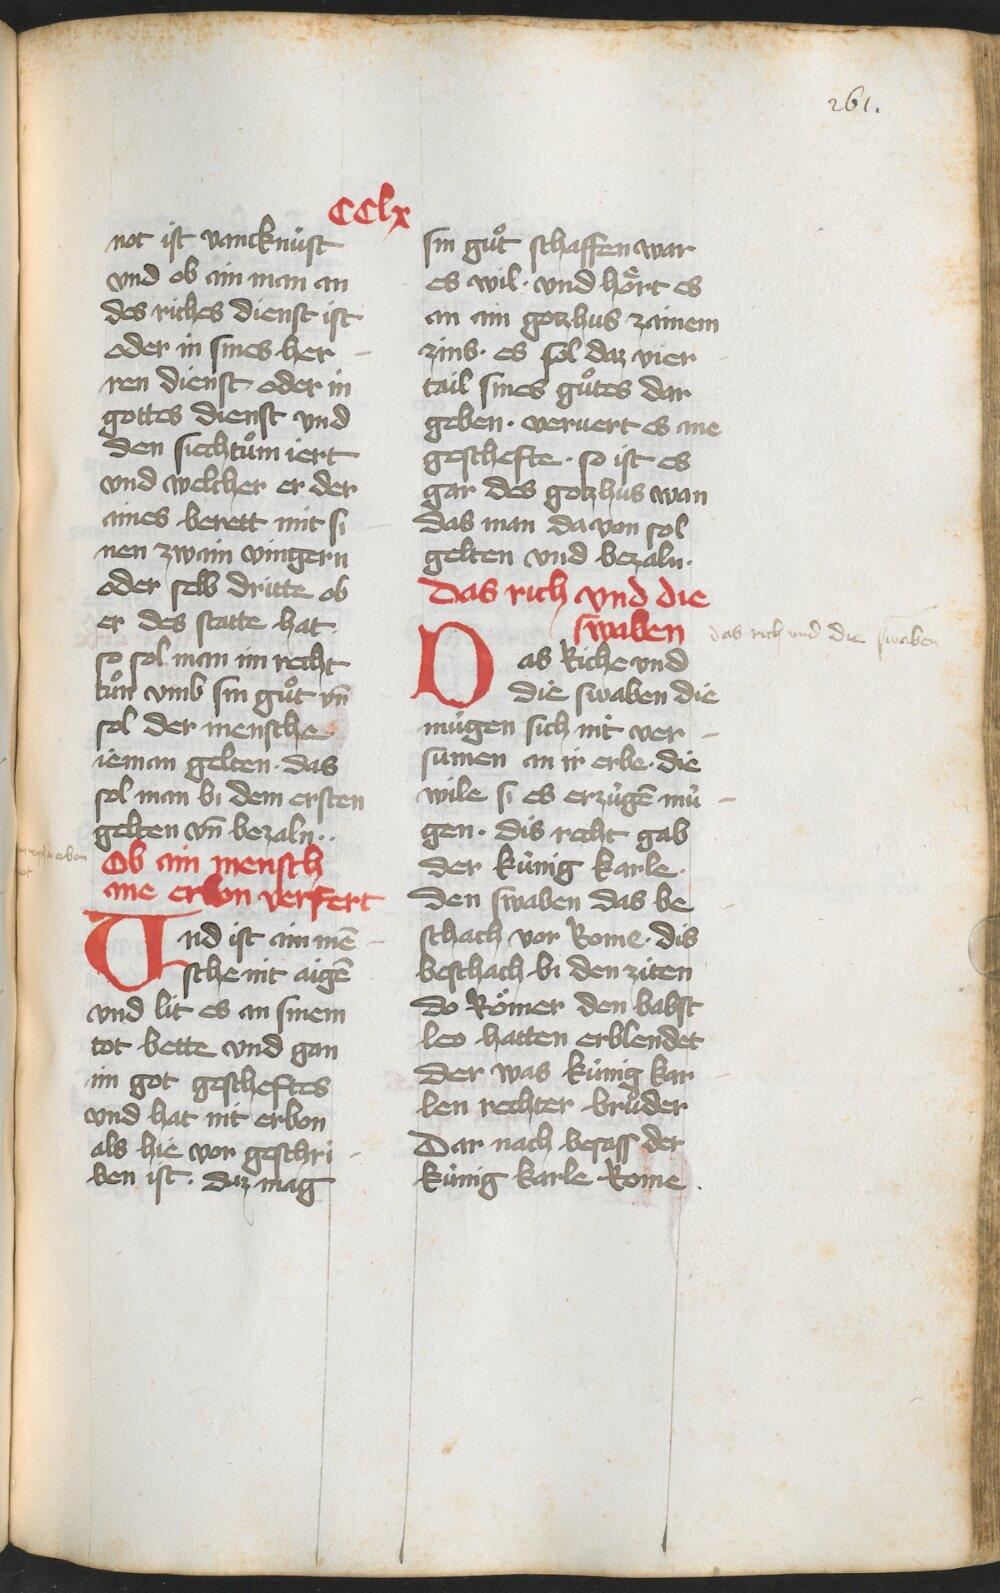 261.
CClx
not ist vancknúst
vnd ob ain man an
des riches dienst ist
oder in sines her
ren dienst oder in
gottes dienst vnd
den siechtuͦm iert
vnd welcher er der
aines berett mit si
nen zwain vingern
oder selb dritte ob
er des statte hat.
so sol man im recht
tuͦn vmb sin guͦt vn̄
sol der mensche
ieman gelten. das
sol man bi dem ersten
gelten vn̄ bezaln..
Ob ain mensch
ane erbon verfert
Vnd ist ain mē
sche nit aigē
vnd lit es an sinem
tot bette vnd gan
im got gescheftes
vnd hat nit erbon
als hie vor geschri
ben ist. daz mag
sin guͦt schaffen war
es wil. vnd hoͤrt es
an ain gotzhus zainem
zins. es sol daz vier
tail sines guͦtes dar
geben. veruert es ane
geschefte. so ist es
gar des gotzhus wan
das man da von sol
gelten vnd bezaln.
Das rich vnd die
swaben
das rich und die swaben
Das Riche vnd
die swaben die
múgen sich nit ver
sumen an ir erbe. die
wile si es erzúgē mú
gen. dis recht gab
der kúnig karle.
den swaben das be
schach vor Rome. dis
beschach bi den ziten
do Römer den babst
leo hatten erblendet
der was kúnig kar
len rechter bruͦder
Dar nach besass der
kúnig karle Rome.